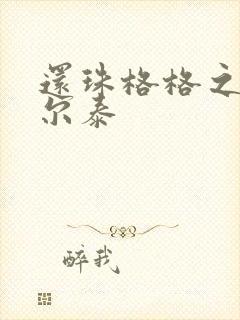 還珠格格之
尔泰
醉我